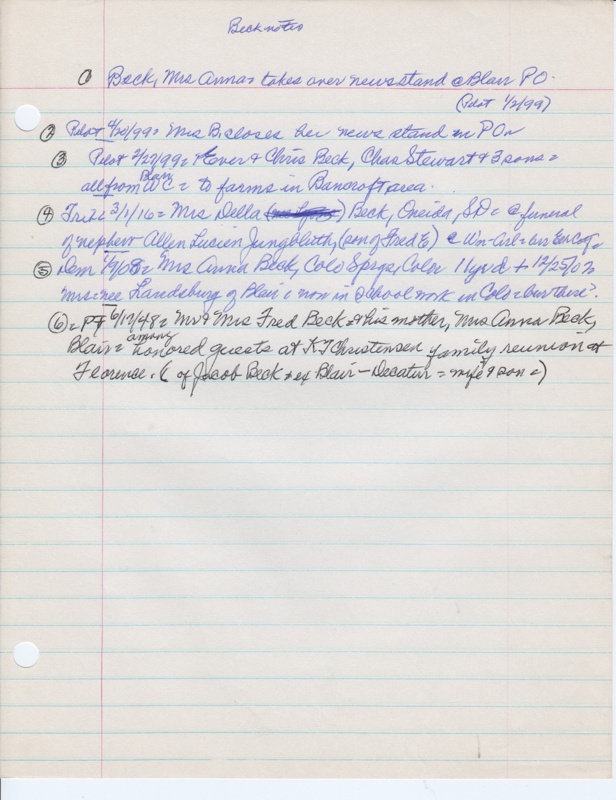 Beck notes
① Beck, Mrs Anna = takes over newsstand @ Blair PO.
(Pilot 1/2/99)
② Pilot 4/20/99 = Mrs B. closes her news stand in PO
③ Pilot 2/22/99 = Chris Beck, Chas Stewart & 3 sons =
all from Blair WC = to farms in Bancroft area.
④ Trib 3/1/16 = Mrs Della Beck, Oneida, SD = @ funeral
of nephew Allen Lucien Jungbluth, (son of Fred E)
⑤ Dem 1/9/08 = Mrs Anna Beck, Colo Spgs, Color 11 yr d + 12/25/07
Mrs = nee Landsburg of Blair & now in school work in Colo =
⑥ = PT 6/17/48 = Mr & Mrs Fred Beck & his mother, Mrs Anna Beck,
Blair = among honored guests at KT Christensen family reunion at
Florence. ( of Jacob Beck = ex Blair - Decatur = wife & son =)